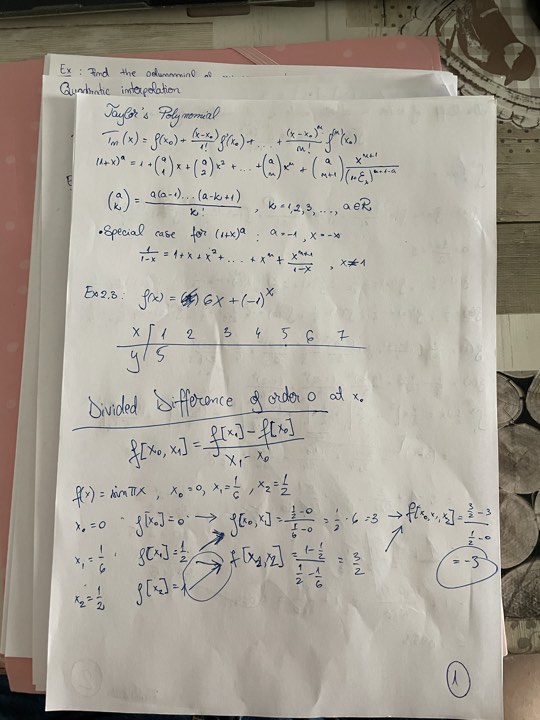 Ex: Find the
Quadratic interpolation
Taylor's Polynomial
Tₙ(x) = f(x₀) + (x-x₀)/1! f'(x₀) + ... + (x-x₀)ⁿ/n! f⁽ⁿ⁾(x₀)
(1+x)ᵃ = 1 + (a 1)x + (a 2)x² + ... + (a n)xⁿ + (a n+1) xⁿ⁺¹/(1+ξₓ)ⁿ⁺¹⁻ᵃ
(a k) = a(a-1)...(a-k+1)/k! , k=1,2,3,..., a∈ℝ
• Special case for (1+x)ᵃ : a=-1, x=-x
1/(1-x) = 1+x+x²+....+xⁿ + xⁿ⁺¹/(1-x) , x≠1
Ex 2.3: f(x) = 6x+(-1)ˣ
x | 1 2 3 4 5 6 7
y | 5
Divided Difference of order 0 at x₀
f[x₀,x₁] = (f[x₁]-f[x₀])/(x₁-x₀)
f(x) = sin πx , x₀=0, x₁=1/6 , x₂=1/2
x₀=0 f[x₀]=0 → f[x₀,x₁] = (1/2-0)/(1/6-0) = 1/2·6=3 → f[x₀,x₁,x₂] = (3/2-3)/(1/2-0)
x₁=1/6 f[x₁]=1/2 f[x₁,x₂] = (1-1/2)/(1/2-1/6) = 3/2 = -3
x₂=1/2 f[x₂]=1
1
2